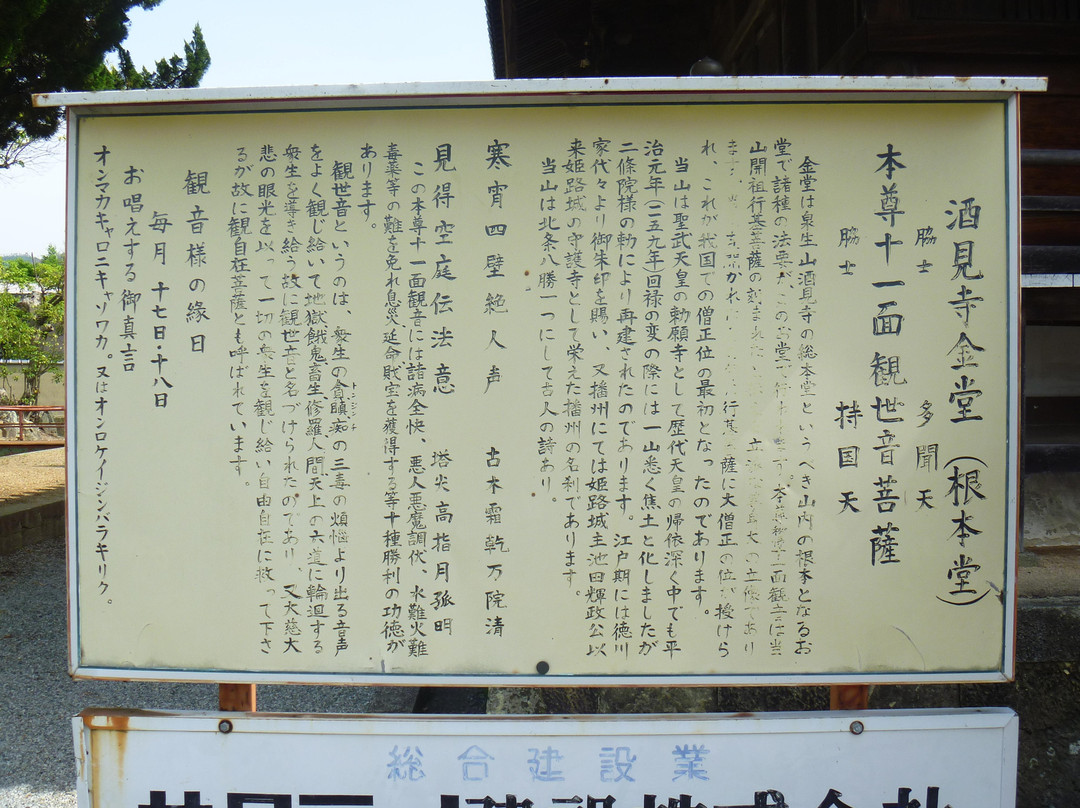 酒見寺金堂(根本堂)
脇士 多聞天
本尊十一面観世音菩薩
脇士 持国天
金堂は泉生山酒見寺の総本堂というべき山内の根本となるお
堂で諸種の法要が、この当堂で行われます。本尊秘十一面観音は当
山開祖行基菩薩の刻まれた 立 大の立像であり
ます。 行基菩薩に大僧正の位が授けら
れ、これが我国での僧正位の最初となったのであります。
当山は聖武天皇の勅願寺として歴代天皇の帰依深く中でも平
治元年(一一五九年)回禄の変の際には一山悉く焦土と化しましたが
二條院様の勅により再建されたのであります。江戸期には徳川
家代々より御朱印を賜い、又播州にては姫路城主池田輝政公以
来姫路城の守護寺として栄えた播州の名刹であります。
当山は北条八勝一つにして古人の詩あり。
寒宵四壁絶人声 古木霜乾万院清
見得空庭伝法意 塔尖高指月張明
この本尊十一面観音には諸病全快、悪人悪魔調伏、水難火難
毒薬等の難を免れ息災延命財宝を獲得する等十種勝利の功徳が
あります。
観世音というのは、衆生の貪瞋痴の三毒の煩悩より出る音声
をよく観じ給いて地獄餓鬼畜生修羅人間天上の六道に輪迴する
衆生を導き給う故に観世音と名づけられたのであり、又大慈大
悲の眼光を以って一切の衆生を観じ給い自由自在に救って下さ
るが故に観自在菩薩とも呼ばれています。
観音様の縁日
毎月十七日・十八日
お唱えする御真言
オンマカキャロニキャソワカ。又はオンロケイジンバラキリク。
総合建設業